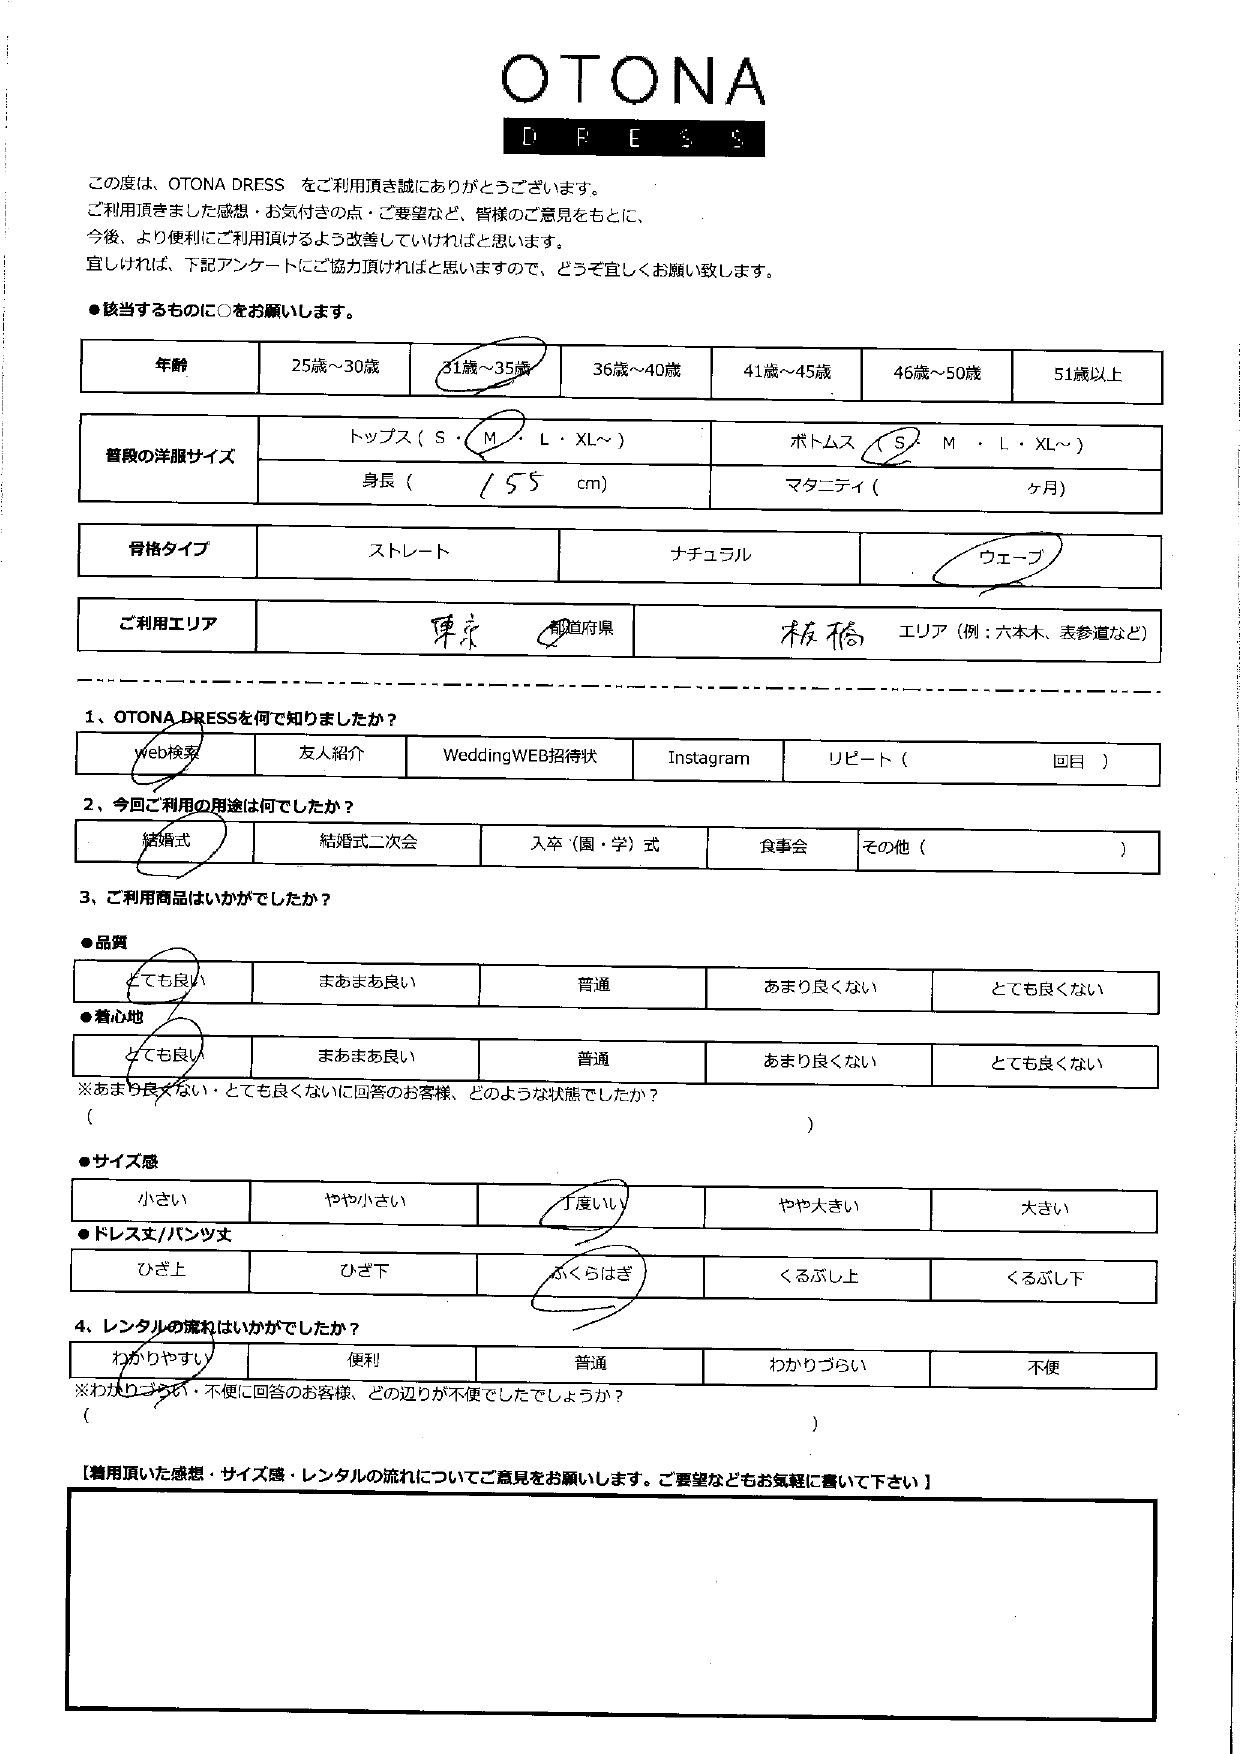 OTONA
DRESS
この度は、OTONA DRESS をご利用頂き誠にありがとうございます。
ご利用頂きました感想・お気付きの点・ご要望など、皆様のご意見をもとに、
今後、より便利にご利用頂けるよう改善していければと思います。
宜しければ、下記アンケートにご協力頂ければと思いますので、どうぞ宜しくお願い致します。
●該当するものに○をお願いします。
年齢 25歳～30歳 31歳～35歳 36歳～40歳 41歳～45歳 46歳～50歳 51歳以上
普段の洋服サイズ トップス ( S ・ M ・ L ・ XL～ ) ボトムス ( S ・ M ・ L ・ XL～ )
身長 ( 155 cm) マタニティ ( ヶ月)
骨格タイプ ストレート ナチュラル ウェーブ
ご利用エリア 東京 都道府県 板橋 エリア（例：六本木、表参道など）
1、OTONA DRESSを何で知りましたか？
web検索 友人紹介 WeddingWEB招待状 Instagram リピート ( 回目 )
2、今回ご利用の用途は何でしたか？
結婚式 結婚式二次会 入卒（園・学）式 食事会 その他 ( )
3、ご利用商品はいかがでしたか？
●品質
とても良い まあまあ良い 普通 あまり良くない とても良くない
●着心地
とても良い まあまあ良い 普通 あまり良くない とても良くない
※あまり良くない・とても良くないに回答のお客様、どのような状態でしたか？
( )
●サイズ感
小さい やや小さい 丁度いい やや大きい 大きい
●ドレス丈/パンツ丈
ひざ上 ひざ下 ふくらはぎ くるぶし上 くるぶし下
4、レンタルの流れはいかがでしたか？
わかりやすい 便利 普通 わかりづらい 不便
※わかりづらい・不便に回答のお客様、どの辺りが不便でしたでしょうか？
( )
【着用頂いた感想・サイズ感・レンタルの流れについてご意見をお願いします。ご要望などもお気軽に書いて下さい】